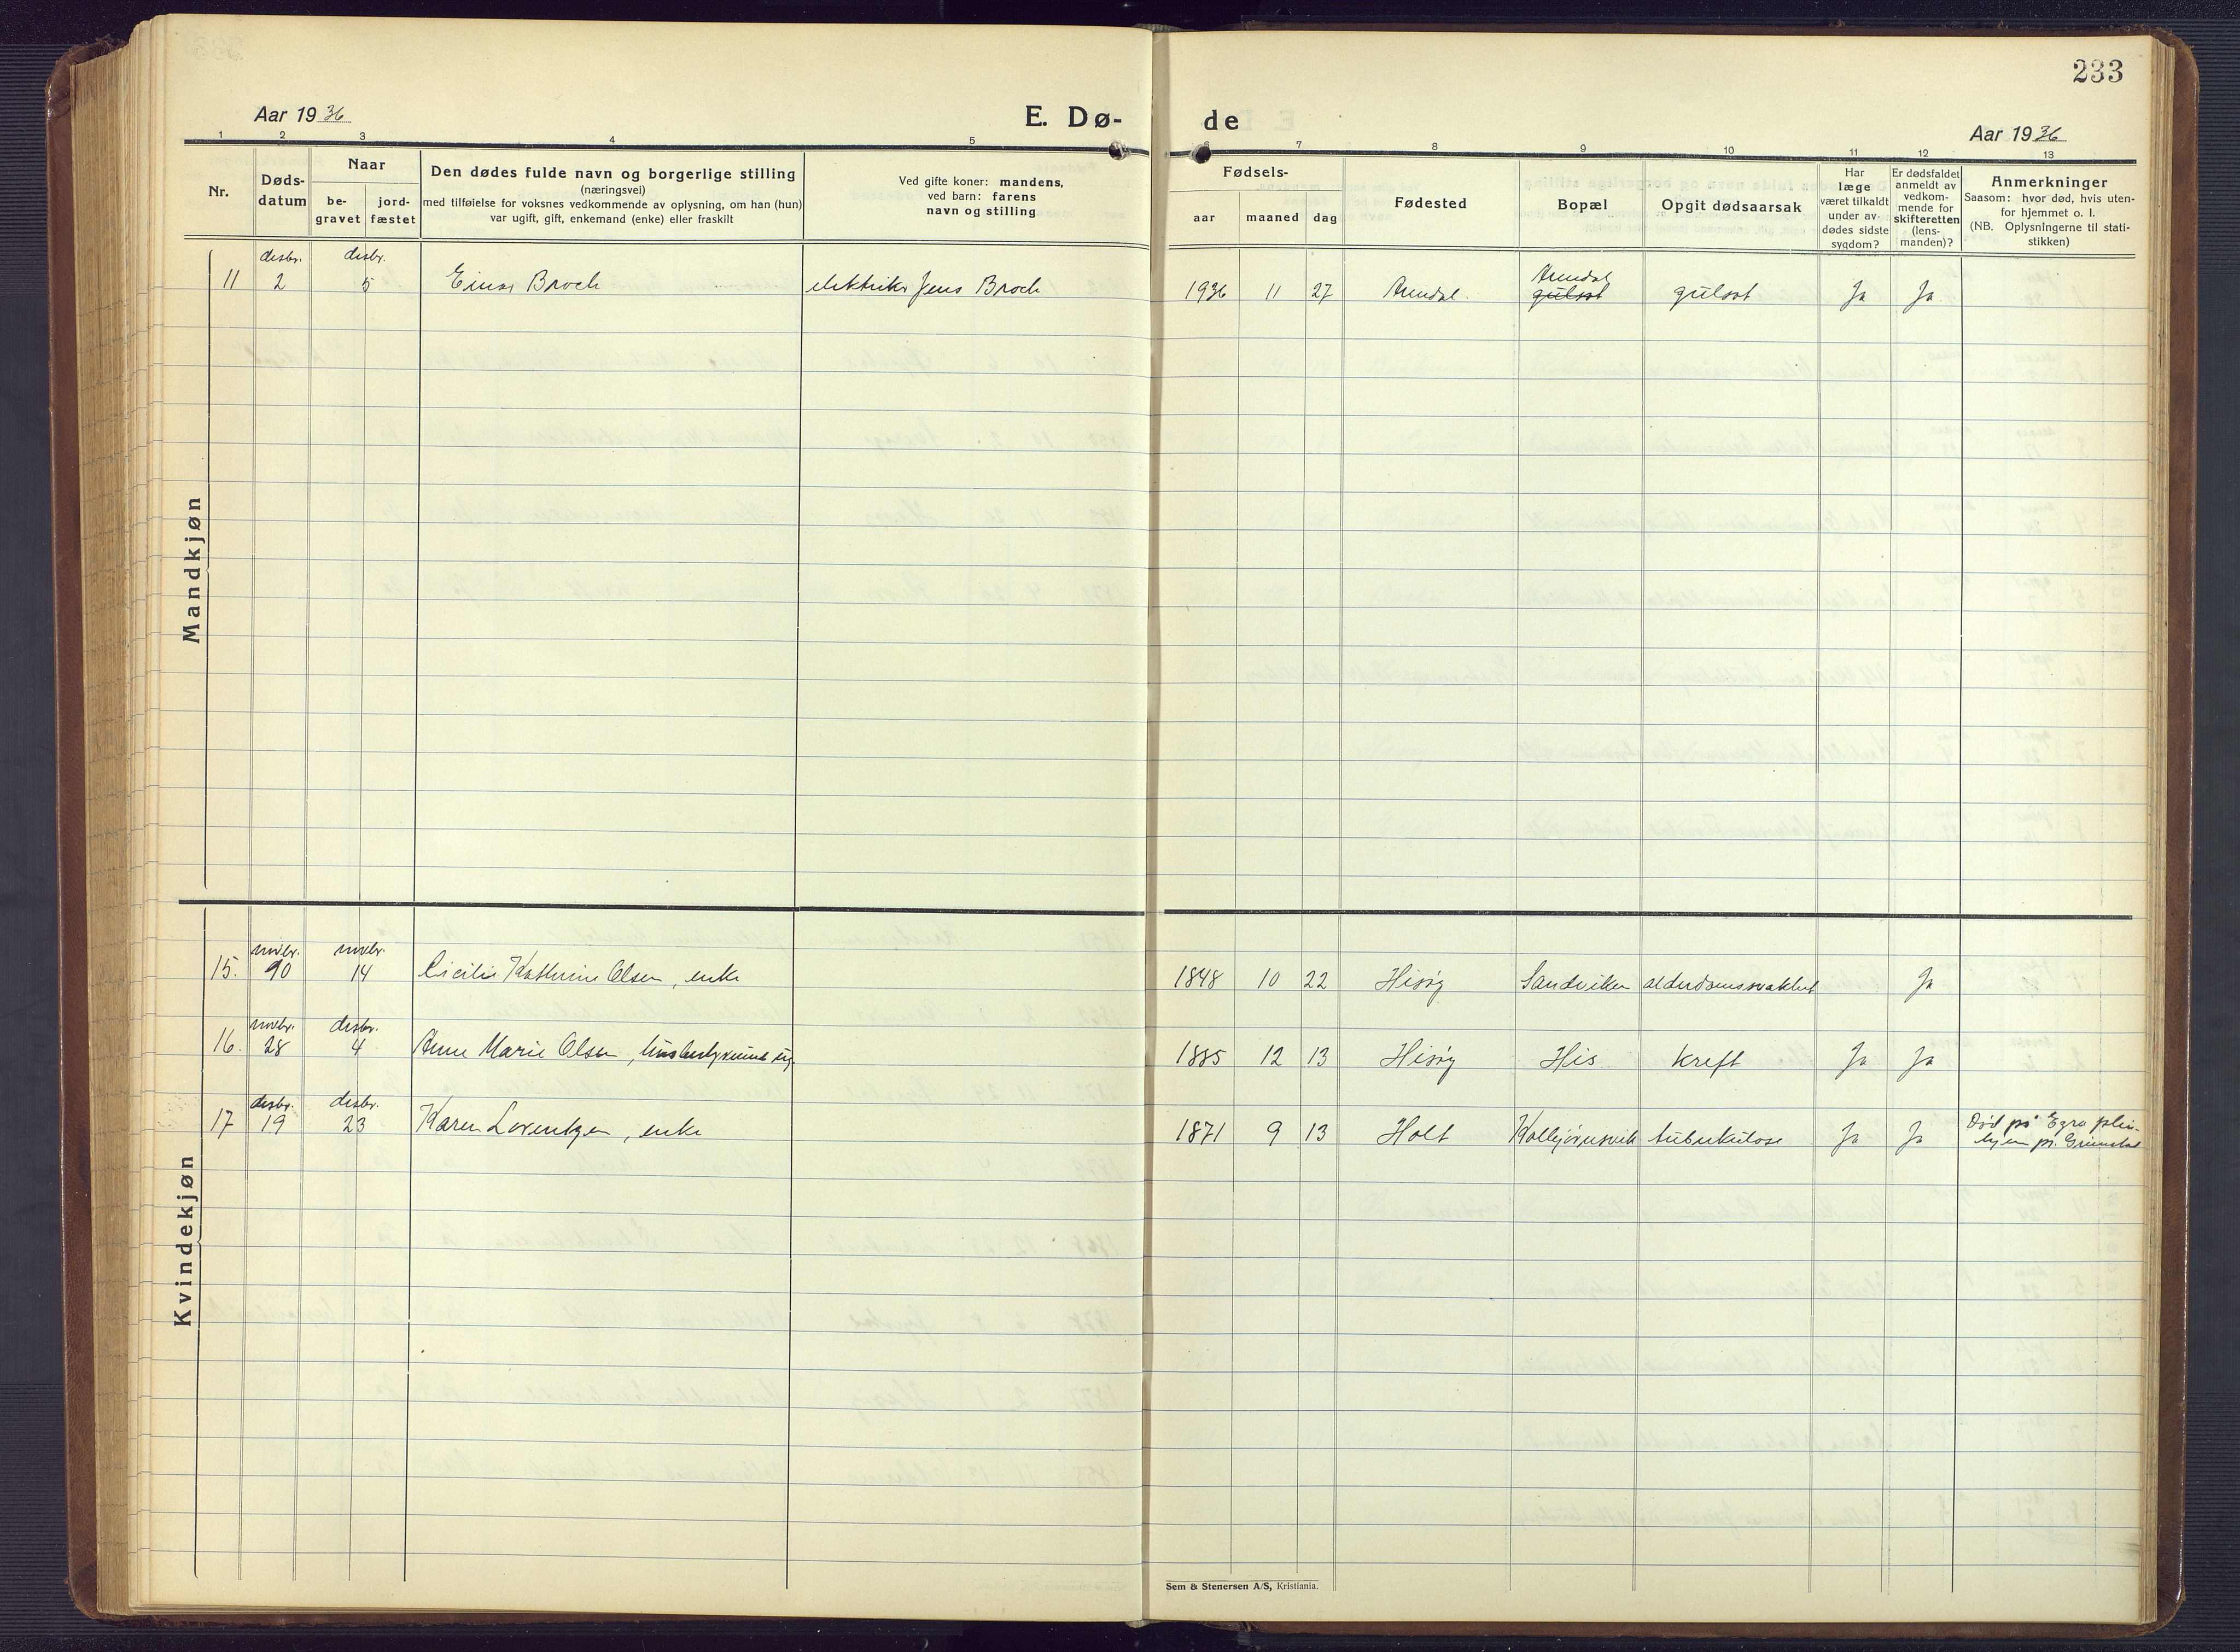 233
Aar 1936
E. Dø-
de
Aar 1936
1 2 3 4 5 6 7 8 9 10 11 12 13
Nr.
Døds-
datum
Naar
be-
gravet
jord-
fæstet
Den dødes fulde navn og borgerlige stilling
(næringsvei)
med tilføielse for voksnes vedkommende av oplysning, om han (hun)
var ugift, gift, enkemand (enke) eller fraskilt
Ved gifte koner: mandens,
ved barn: farens
navn og stilling
Fødsels-
aar maaned dag
Fødested
Bopæl
Opgit dødsaarsak
Har
læge
været tilkaldt
under av-
dødes sidste
sygdom?
Er dødsfaldet
anmeldt av
vedkom-
mende for
skifteretten
(lens-
manden)?
Anmerkninger
Saasom: hvor død, hvis uten-
for hjemmet o. l.
(NB. Oplysningerne til stati-
stikken)
Mandkjøn
desbr. desbr. Arendal
11 2 5 Einar Broch elektriker Jens Broch 1936 11 27 Arendal. gulsot gulsot Ja Ja
Kvindekjøn
novbr. novbr.
15. 90 14 Cicilie Kathrine Olsen, enke 1848 10 22 Hisøy Sandviken alderdomssvakhet Ja
novbr. desbr.
16. 28 4 Anne Marie Olsen, husbestyrerinne ug. 1885 12 13 Hisøy His kreft Ja Ja
desbr. desbr.
17 19 23 Karen Lorentzen, enke 1871 9 13 Holt Kolbjørnsvik tuberkulose Ja Ja Død på
hjem pr. Grimstad
Sem & Stenersen A/S, Kristiania.